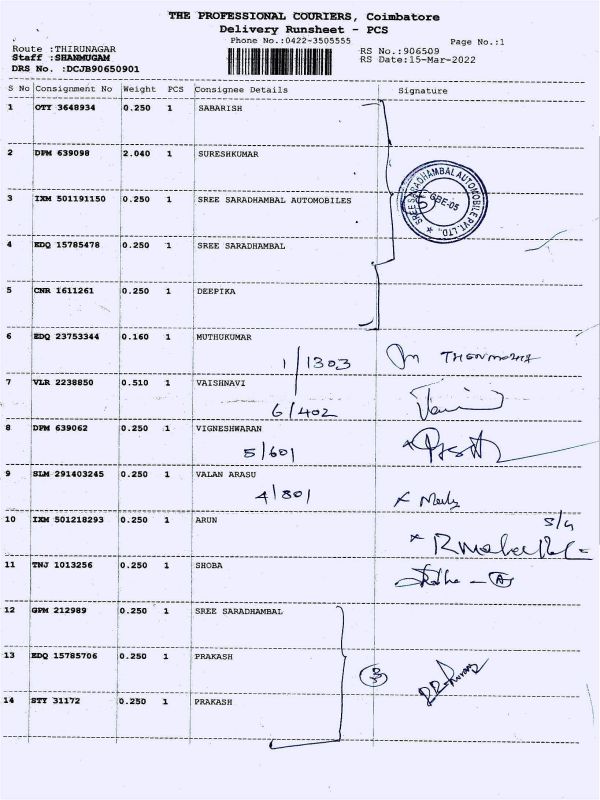 THE PROFESSIONAL COURIERS, Coimbatore
Delivery Runsheet - PCS
Phone No.:0422-3505555
Page No.:1
Route :THIRUNAGAR
Staff :SHANMUGAM
DRS No. :DCJB90650901
RS No.:906509
RS Date:15-Mar-2022
S No Consignment No Weight PCS Consignee Details Signature
1 OTY 3648934 0.250 1 SABARISH
2 DPM 639098 2.040 1 SURESHKUMAR
3 IXM 501191150 0.250 1 SREE SARADHAMBAL AUTOMOBILES
SREE SARADHAMBAL AUTOMOBILE PVT. LTD.,
5
CBE-05
4 EDQ 15785478 0.250 1 SREE SARADHAMBAL
5 CNR 1611261 0.250 1 DEEPIKA
6 EDQ 23753344 0.160 1 MUTHUKUMAR
1/1303
7 VLR 2238850 0.510 1 VAISHNAVI
6/402
8 DPM 639062 0.250 1 VIGNESHWARAN
5/601
9 SLM 291403245 0.250 1 VALAN ARASU
4/801
10 IXM 501218293 0.250 1 ARUN
11 TNJ 1013256 0.250 1 SHOBA
12 GPM 212989 0.250 1 SREE SARADHAMBAL
13 EDQ 15785706 0.250 1 PRAKASH
14 STY 31172 0.250 1 PRAKASH